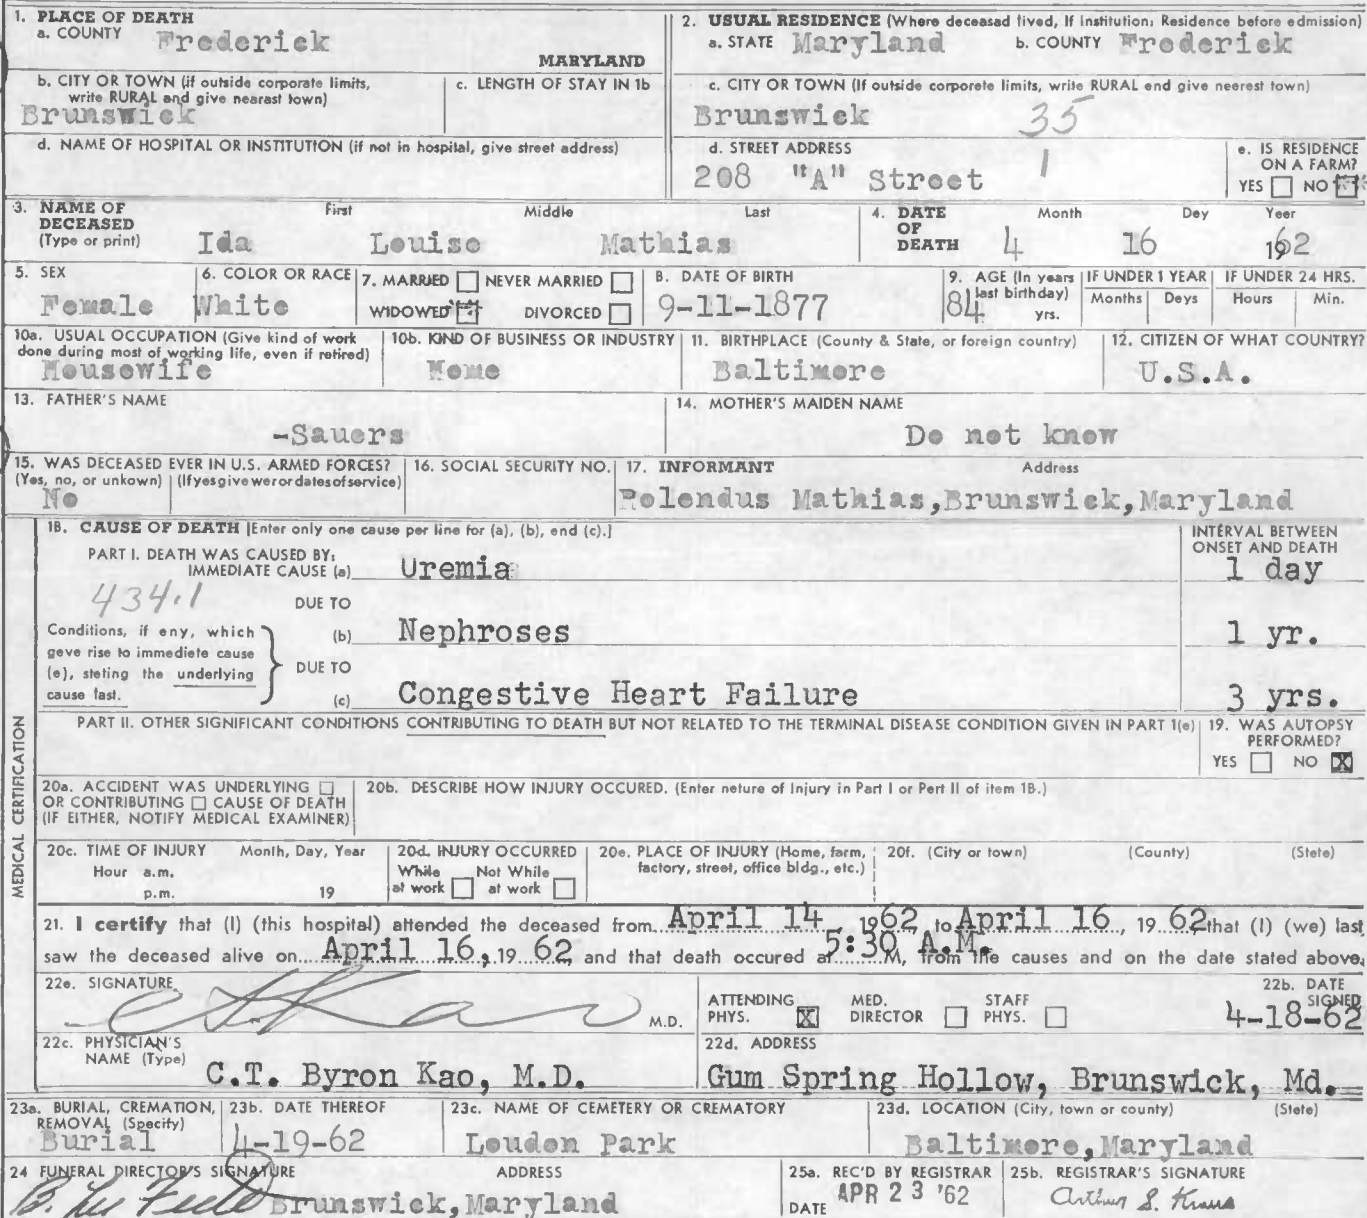 1. PLACE OF DEATH
a. COUNTY Frederick MARYLAND
b. CITY OR TOWN (if outside corporate limits, write RURAL and give nearest town)
Brunswick
c. LENGTH OF STAY IN 1b
d. NAME OF HOSPITAL OR INSTITUTION (if not in hospital, give street address)
2. USUAL RESIDENCE (Where deceased lived, If institution: Residence before admission)
a. STATE Maryland b. COUNTY Frederick
c. CITY OR TOWN (If outside corporate limits, write RURAL and give nearest town)
Brunswick 35
d. STREET ADDRESS
208 "A" Street 1
e. IS RESIDENCE ON A FARM?
YES NO
3. NAME OF DECEASED (Type or print)
First Middle Last
Ida Louise Mathias
4. DATE OF DEATH
Month Day Year
4 16 1962
5. SEX
Female
6. COLOR OR RACE
White
7. MARRIED NEVER MARRIED
WIDOWED DIVORCED
8. DATE OF BIRTH
9-11-1877
9. AGE (In years last birthday)
84 yrs.
IF UNDER 1 YEAR
Months Days
IF UNDER 24 HRS.
Hours Min.
10a. USUAL OCCUPATION (Give kind of work done during most of working life, even if retired)
Housewife
10b. KIND OF BUSINESS OR INDUSTRY
Home
11. BIRTHPLACE (County & State, or foreign country)
Baltimore
12. CITIZEN OF WHAT COUNTRY?
U.S.A.
13. FATHER'S NAME
-Sauers
14. MOTHER'S MAIDEN NAME
Do not know
15. WAS DECEASED EVER IN U.S. ARMED FORCES?
(Yes, no, or unkown) (If yes give wer or dates of service)
No
16. SOCIAL SECURITY NO.
17. INFORMANT Address
Rolendus Mathias,Brunswick,Maryland
MEDICAL CERTIFICATION
18. CAUSE OF DEATH [Enter only one cause per line for (a), (b), and (c).]
INTERVAL BETWEEN ONSET AND DEATH
PART I. DEATH WAS CAUSED BY:
IMMEDIATE CAUSE (a) Uremia 1 day
434.1
DUE TO
Conditions, if any, which gave rise to immediate cause (a), stating the underlying cause last.
(b) Nephroses 1 yr.
DUE TO
(c) Congestive Heart Failure 3 yrs.
PART II. OTHER SIGNIFICANT CONDITIONS CONTRIBUTING TO DEATH BUT NOT RELATED TO THE TERMINAL DISEASE CONDITION GIVEN IN PART 1(a)
19. WAS AUTOPSY PERFORMED?
YES NO X
20a. ACCIDENT WAS UNDERLYING
OR CONTRIBUTING CAUSE OF DEATH
(IF EITHER, NOTIFY MEDICAL EXAMINER)
20b. DESCRIBE HOW INJURY OCCURED. (Enter nature of Injury in Part I or Part II of item 18.)
20c. TIME OF INJURY Month, Day, Year
Hour a.m.
p.m. 19
20d. INJURY OCCURRED
While at work Not While at work
20e. PLACE OF INJURY (Home, farm, factory, street, office bldg., etc.)
20f. (City or town) (County) (State)
21. I certify that (I) (this hospital) attended the deceased from April 14, 1962 to April 16, 1962 that (I) (we) last
saw the deceased alive on April 16, 1962, and that death occured at 5:30 A.M. M, from the causes and on the date stated above.
22a. SIGNATURE M.D.
ATTENDING PHYS. X MED. DIRECTOR STAFF PHYS.
22b. DATE SIGNED
4-18-62
22c. PHYSICIAN'S NAME (Type)
C.T. Byron Kao, M.D.
22d. ADDRESS
Gum Spring Hollow, Brunswick, Md.
23a. BURIAL, CREMATION, REMOVAL (Specify)
Burial
23b. DATE THEREOF
4-19-62
23c. NAME OF CEMETERY OR CREMATORY
Loudon Park
23d. LOCATION (City, town or county) (State)
Baltimore,Maryland
24 FUNERAL DIRECTOR'S SIGNATURE ADDRESS
Brunswick,Maryland
25a. REC'D BY REGISTRAR
DATE APR 23 '62
25b. REGISTRAR'S SIGNATURE
Arthur S. Kraus